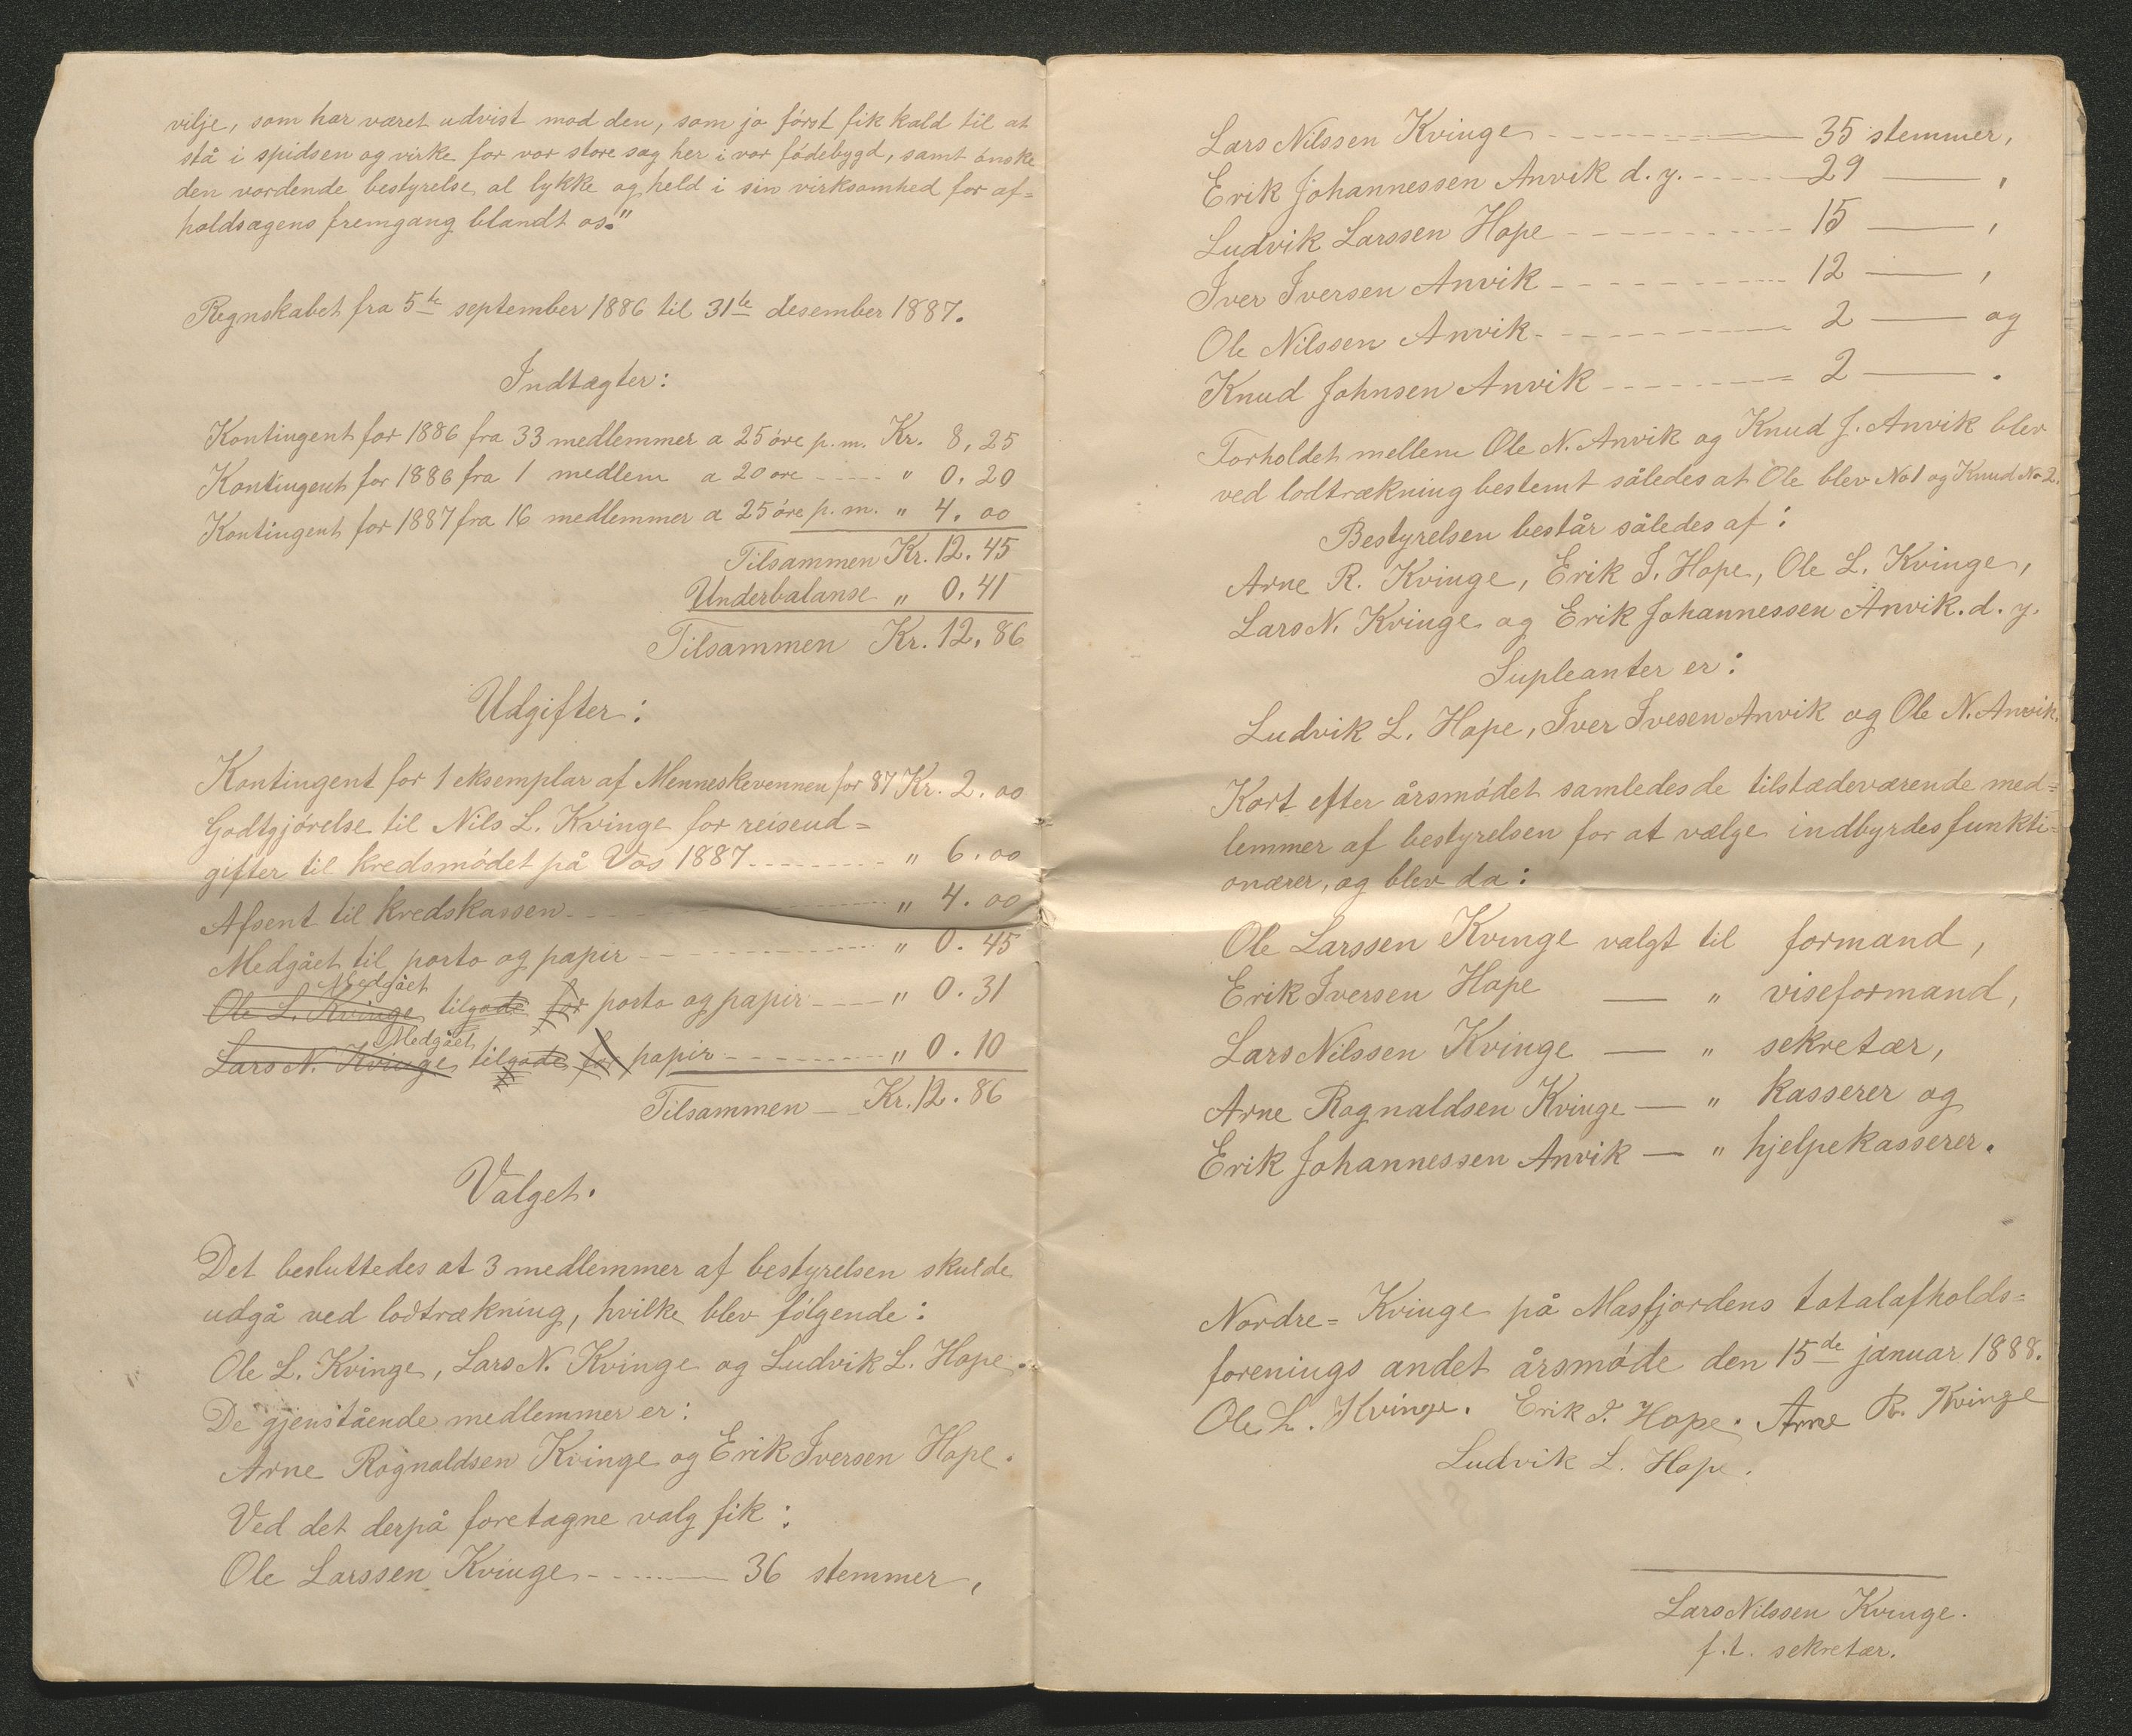 vilje, som har været udvist mod den, som jo først fik kald til at
stå i spidsen og virke for vor store sag her i vor fødebygd, samt ønske
den vordende bestyrelse al lykke og held i sin virksomhed for af=
holdsagens fremgang blandt os."
Regnskabet fra 5te september 1886 til 31te desember 1887.
Indtægter:
Kontingent for 1886 fra 33 medlemmer a 25 øre p.m. Kr. 8,25
Kontingent for 1886 fra 1 medlem a 20 øre ----- " 0.20
Kontingent for 1887 fra 16 medlemmer a 25 øre p.m. " 4.00
Tilsammen Kr. 12.45
Underbalanse " 0.41
Tilsammen Kr. 12.86
Udgifter:
Kontingent for 1 eksemplar af Menneskevennen for 87 Kr. 2.00
Godtgjørelse til Nils L. Kvinge for reiseud=
gifter til kredsmødet på Vos 1887 --------- " 6.00
Afsent til kredskassen --------- " 4.00
Medgået til porto og papir --------- " 0.45
Medgået
Ole L. Kvinge tilgode for porto og papir ---- " 0.31
Medgået
Lars N. Kvinge tilgode for papir --------- " 0.10
Tilsammen -- Kr. 12.86
Valget.
Det besluttedes at 3 medlemmer af bestyrelsen skulde
udgå ved lodtrækning, hvilke blev følgende:
Ole L. Kvinge, Lars N. Kvinge og Ludvik L. Hope.
De gjenstående medlemmer er:
Arne Rognaldsen Kvinge og Erik Iversen Hope.
Ved det derpå foretagne valg fik:
Ole Larssen Kvinge -------- 36 stemmer,
Lars Nilssen Kvinge --------- 35 stemmer,
Erik Johannessen Anvik d.y. ------ 29 — ,
Ludvik Larssen Hope --------- 15 — ,
Iver Iversen Anvik --------- 12 — ,
Ole Nilssen Anvik --------- 2 — og
Knud Johnsen Anvik --------- 2 — .
Forholdet mellem Ole N. Anvik og Knud J. Anvik blev
ved lodtrækning bestemt således at Ole blev No 1 og Knud No 2.
Bestyrelsen består således af:
Arne R. Kvinge, Erik I. Hope, Ole L. Kvinge,
Lars N. Kvinge og Erik Johannessen Anvik. d. y.
Supleanter er:
Ludvik L. Hope, Iver Ivesen Anvik og Ole N. Anvik.
Kort efter årsmødet samledes de tilstædeværende med=
lemmer af bestyrelsen for at vælge indbyrdes funkti=
onærer, og blev da:
Ole Larssen Kvinge valgt til formand,
Erik Iversen Hope — " viseformand,
Lars Nilssen Kvinge — " sekretær,
Arne Rognaldsen Kvinge — " kasserer og
Erik Johannessen Anvik — " hjelpekasserer.
Nordre= Kvinge på Masfjordens totalafholds=
forenings andet årsmøde den 15de januar 1888.
Ole L. Kvinge. Erik I. Hope. Arne R. Kvinge
Ludvik L. Hope.
Lars Nilssen Kvinge.
f.t. sekretær.